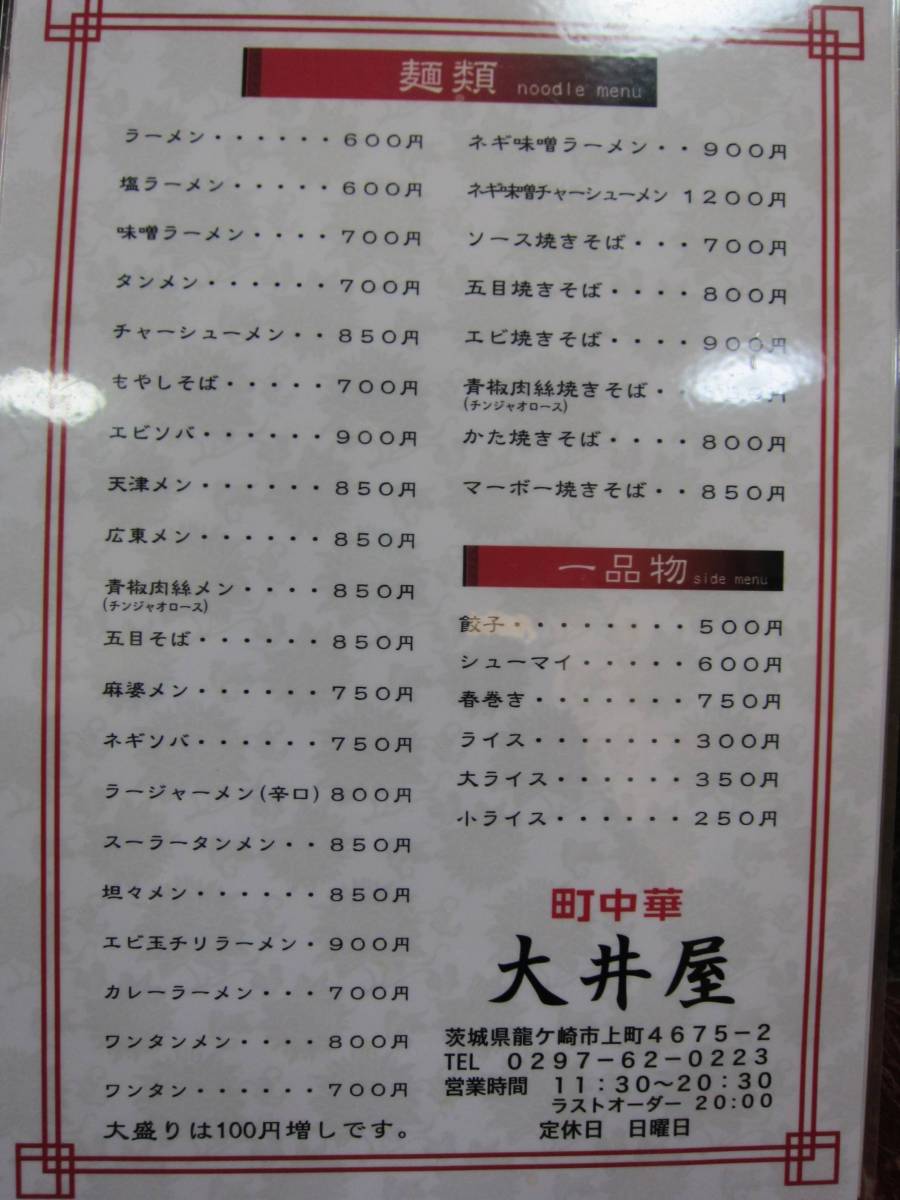 麺類 noodle menu
ラーメン・・・・・・600円
塩ラーメン・・・・・600円
味噌ラーメン・・・・700円
タンメン・・・・・・700円
チャーシューメン・・850円
もやしそば・・・・・700円
エビソバ・・・・・・900円
天津メン・・・・・・850円
広東メン・・・・・・850円
青椒肉絲メン・・・・850円
(チンジャオロース)
五目そば・・・・・・850円
麻婆メン・・・・・・750円
ネギソバ・・・・・・750円
ラージャーメン(辛口)800円
スーラータンメン・・850円
坦々メン・・・・・・850円
エビ玉チリラーメン・900円
カレーラーメン・・・700円
ワンタンメン・・・・800円
ワンタン・・・・・・700円
大盛りは100円増しです。
ネギ味噌ラーメン・・900円
ネギ味噌チャーシューメン 1200円
ソース焼きそば・・・700円
五目焼きそば・・・・800円
エビ焼きそば・・・・900円
青椒肉絲焼きそば・・円
(チンジャオロース)
かた焼きそば・・・・800円
マーボー焼きそば・・850円
一品物 side menu
餃子・・・・・・・・500円
シューマイ・・・・・600円
春巻き・・・・・・・750円
ライス・・・・・・・300円
大ライス・・・・・・350円
小ライス・・・・・・250円
町中華
大井屋
茨城県龍ケ崎市上町4675-2
TEL 0297-62-0223
営業時間 11:30〜20:30
ラストオーダー 20:00
定休日 日曜日